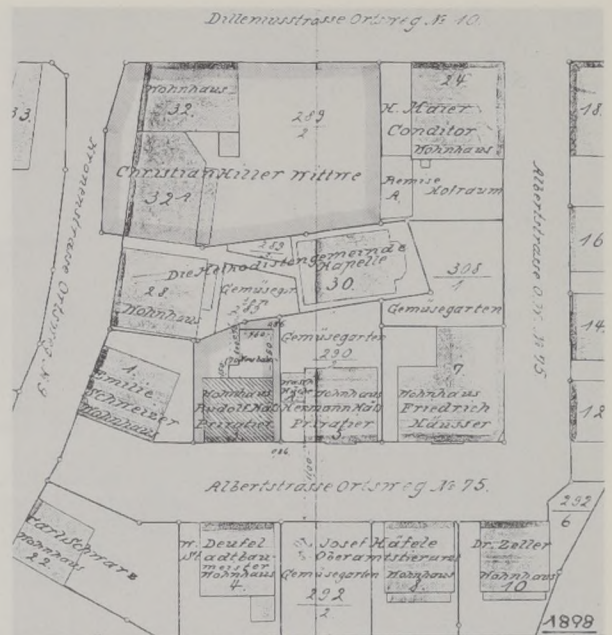 Dilleniusstrasse Ortsweg № 10.
33.
Wohnhaus
32.
289
2
24.
H. Maier
Conditor
Wohnhaus
18.
Christian Hiller Wittwe
32A
Remise
A.
Hofraum
Kronenstrasse Ortsweg № 9
Albertstrasse O.W. № 75
16
289
Die Methodistengemeinde
Kapelle
30.
308
1
28.
Wohnhaus
Gemüsegr.
Gemüsegarten
14.
Gemüsegarten
290
2
1.
Emilie
Schmeizer
Wohnhaus
Wohnhaus
Rudolf
Privatier
Wohnhaus
Hermann
Privatier
5.
7.
Wohnhaus
Friedrich
Häusser
12
Albertstrasse Ortsweg № 75.
292
6
Karl Schwarz
Wohnhaus
22.
W. Deufel
Stadtbau-
meister
Wohnhaus
4.
Josef Häfele
Oberamtstierarzt
Gemüsegarten
292
2
Wohnhaus
8.
Dr. Zeller
Wohnhaus
10
1898